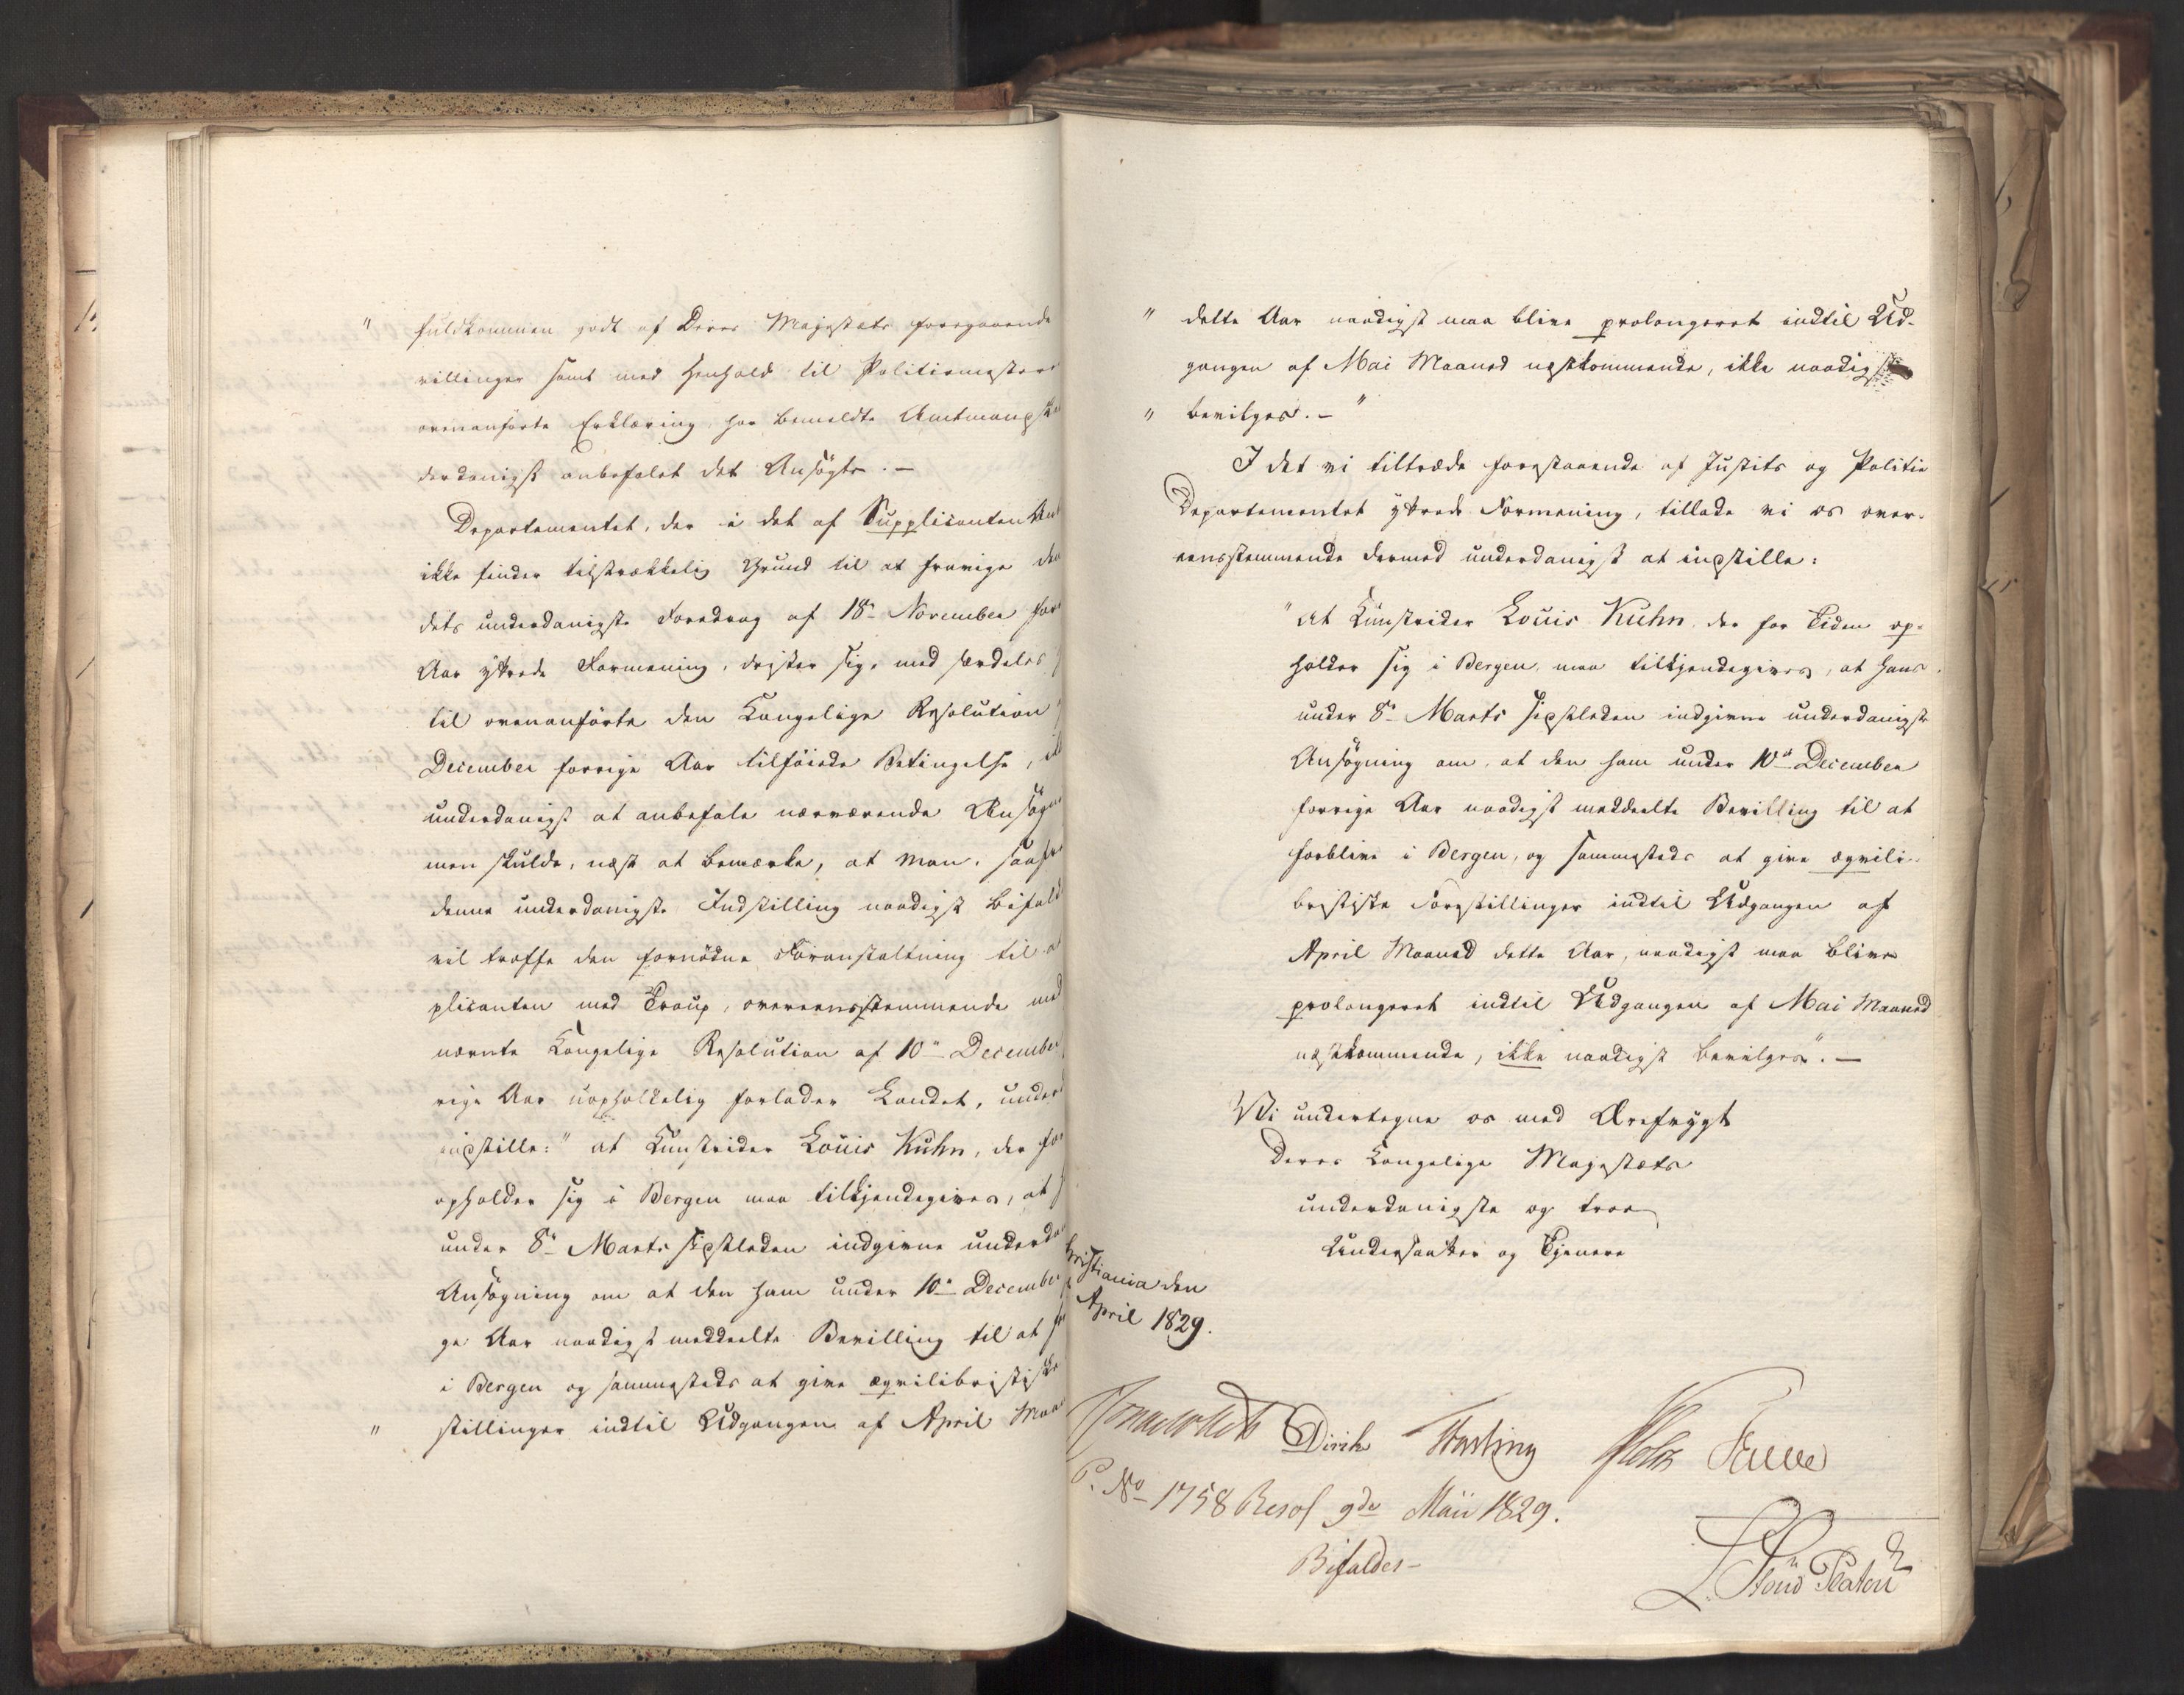 " fuldkommen godt af Deres Majestæts foregaaende
villinger samt med Henhold til Politiemesterens
ovenanførte Erklæring, har bemeldte Amtmand
derdanigst anbefalet det Ansøgte. –
Departementet, der i det af Supplicanten
ikke finder tilstrækkelig Grund til at fravige den
dets underdanigste Foredrag af 18n November for
Aar yttrede Formening, drister sig, med særdeles
til ovenanførte den Kongelige Resolution
December forrige Aar tilføiede Betingelse, ik
underdanigst at anbefale nærværende Ansøgn
men skulde, næst at bemærke, at man, saafre
denne underdanigste Indstilling naadigst bifald
vil træffe den fornødne Foranstaltning til at
plicanten med Troup, overeensstemmende med
nævnte Kongelige Resolution af 10n December
rige Aar uopholdelig forlader Landet, underd
indstille: " at Kunstrider Louis Kuhn, der for
opholder sig i Bergen maa tilkjendegives, at h
under 8n Marts sidstleden indgivne underda
Ansøgning om at den ham under 10n December f
ge Aar naadigst meddeelte Bevilling til at for
i Bergen og sammesteds at give æqvilibristiske
" stillinger indtil Udgangen af April Maa
" dette Aar naadigst maa blive prolongeret indtil Ud-
gangen af Mai Maaned næstkommende, ikke naadigst
" bevilges. – "
I det vi tiltræde forestaaende af Justits og Politie
Departementet yttrede Formening, tillade vi os over-
eensstemmende dermed underdanigst at indstille:
"at Kunstrider Louis Kuhn, der for Tiden op-
holder sig i Bergen, maa tilkjendegives, at hans
under 8n Marts sidstleden indgivne underdanigste
Ansøgning om, at den ham under 10n December
forrige Aar naadigst meddeelte Bevilling til at
forblive i Bergen, og sammesteds at give æqvili-
bristiske Forestillinger indtil Udgangen af
April Maaned dette Aar, naadigst maa blive
prolongeret indtil Udgangen af Mai Maaned
næstkommende, ikke naadigst bevilges". –
Vi undertegne os med Ærefrygt
Deres Kongelige Majestæts
underdanigste og troe
Undersaatter og Tjenere
Christiania den
April 1829.
Diriks Fasting Holst Fauve
P. No 1758 Resol 9de Maii 1829.
Bifaldes –
L. Stoud Platou